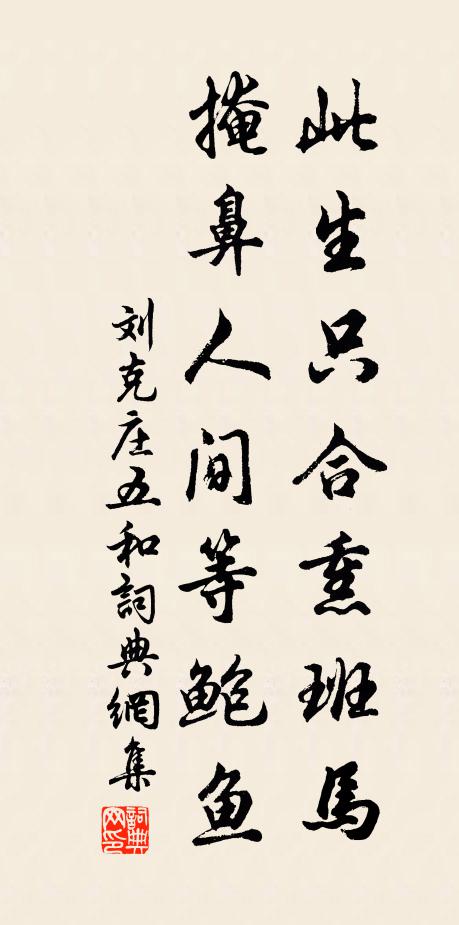 此生只合熏班馬
掩鼻人间等鲍鱼
刘克庄五和詞典網集
詞典网印